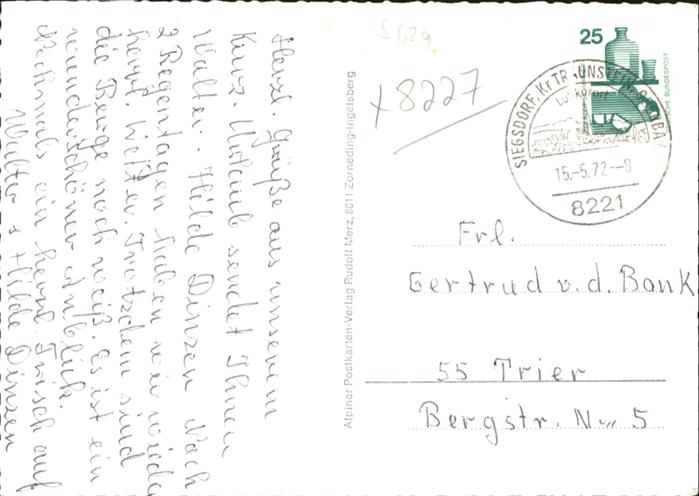 Herzl. Grüße aus unserem
Kurz-Urlaub sendet Ihnen
Walter + Hilde Dinzen Nach
2 Regentagen haben wir wieder
herrl. Wetter. Trotzdem sind
die Berge noch weiß. Es ist ein
wunderschöner Anblick.
Nochmals ein herrl. Frisch auf
Walter + Hilde Dinzen
Alpiner Postkarten-Verlag Rudolf Merz, 8011 Zorneding-Ingelsberg
S 629
x 8227
25
DEUTSCHE BUNDESPOST
SIEGSDORF, Kr TRAUNSTEIN, OBERBAY
Luftkurort
15.-5.72--8
8221
Frl.
Gertrud v.d. Bank
55 Trier
Bergstr. Nr. 5